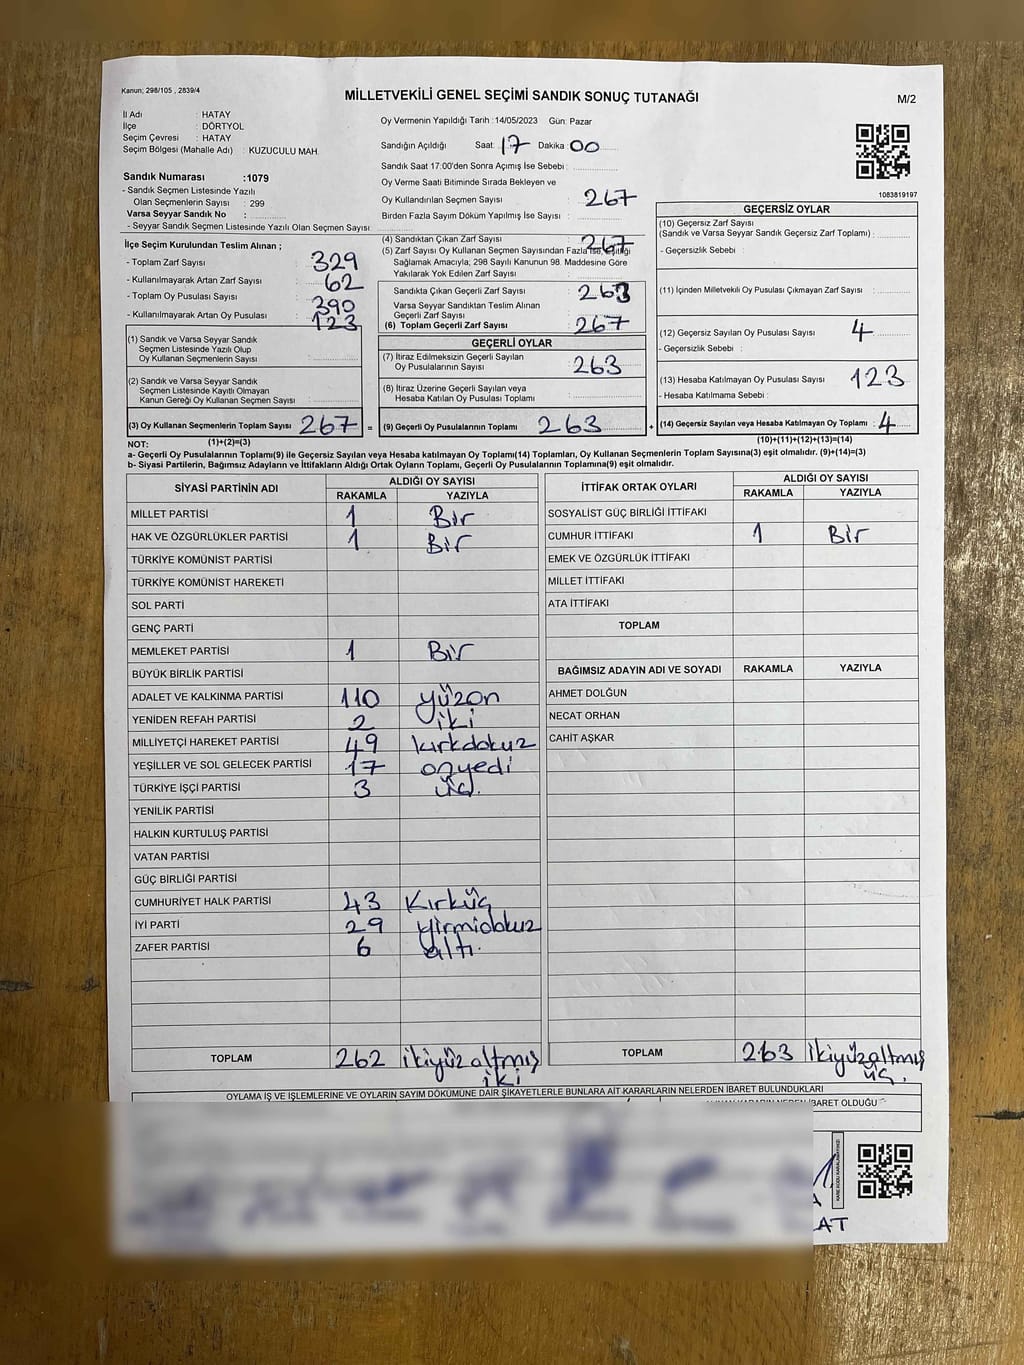 Kanun; 298/105 , 2839/4
MİLLETVEKİLİ GENEL SEÇİMİ SANDIK SONUÇ TUTANAĞI
M/2
İl Adı : HATAY
İlçe : DÖRTYOL
Seçim Çevresi : HATAY
Seçim Bölgesi (Mahalle Adı) : KUZUCULU MAH.
Sandık Numarası :1079
- Sandık Seçmen Listesinde Yazılı
Olan Seçmenlerin Sayısı : 299
Varsa Seyyar Sandık No :
- Seyyar Sandık Seçmen Listesinde Yazılı Olan Seçmen Sayısı
Oy Vermenin Yapıldığı Tarih :14/05/2023 Gün: Pazar
Sandığın Açıldığı Saat: 17 Dakika: 00
Sandık Saat 17:00'den Sonra Açımış İse Sebebi :
Oy Verme Saati Bitiminde Sırada Bekleyen ve
Oy Kullandırılan Seçmen Sayısı : 267
Birden Fazla Sayım Döküm Yapılmış İse Sayısı :
1083819197
İlçe Seçim Kurulundan Teslim Alınan ;
- Toplam Zarf Sayısı : 329
- Kullanılmayarak Artan Zarf Sayısı : 62
- Toplam Oy Pusulası Sayısı : 390
- Kullanılmayarak Artan Oy Pusulası : 123
(1) Sandık ve Varsa Seyyar Sandık
Seçmen Listesinde Yazılı Olup
Oy Kullanan Seçmenlerin Sayısı :
(2) Sandık ve Varsa Seyyar Sandık
Seçmen Listesinde Kayıtlı Olmayan
Kanun Gereği Oy Kullanan Seçmen Sayısı :
(3) Oy Kullanan Seçmenlerin Toplam Sayısı : 267 =
(1)+(2)=(3)
(4) Sandıktan Çıkan Zarf Sayısı : 267
(5) Zarf Sayısı Oy Kullanan Seçmen Sayısından Fazla İse, Eşitliği
Sağlamak Amacıyla; 298 Sayılı Kanunun 98. Maddesine Göre
Yakılarak Yok Edilen Zarf Sayısı :
Sandıkta Çıkan Geçerli Zarf Sayısı : 263
Varsa Seyyar Sandıktan Teslim Alınan
Geçerli Zarf Sayısı :
(6) Toplam Geçerli Zarf Sayısı : 267
GEÇERLİ OYLAR
(7) İtiraz Edilmeksizin Geçerli Sayılan
Oy Pusulalarının Sayısı : 263
(8) İtiraz Üzerine Geçerli Sayılan veya
Hesaba Katılan Oy Pusulası Toplamı :
(9) Geçerli Oy Pusulalarının Toplamı : 263 +
GEÇERSİZ OYLAR
(10) Geçersiz Zarf Sayısı
(Sandık ve Varsa Seyyar Sandık Geçersiz Zarf Toplamı) :
- Geçersizlik Sebebi :
(11) İçinden Milletvekili Oy Pusulası Çıkmayan Zarf Sayısı :
(12) Geçersiz Sayılan Oy Pusulası Sayısı : 4
- Geçersizlik Sebebi :
(13) Hesaba Katılmayan Oy Pusulası Sayısı : 123
- Hesaba Katılmama Sebebi :
(14) Geçersiz Sayılan veya Hesaba Katılmayan Oy Toplamı : 4
(10)+(11)+(12)+(13)=(14)
NOT:
a- Geçerli Oy Pusulalarının Toplamı(9) ile Geçersiz Sayılan veya Hesaba katılmayan Oy Toplamı(14) Toplamları, Oy Kullanan Seçmenlerin Toplam Sayısına(3) eşit olmalıdır. (9)+(14)=(3)
b- Siyasi Partilerin, Bağımsız Adayların ve İttifakların Aldığı Ortak Oyların Toplamı, Geçerli Oy Pusulalarının Toplamına(9) eşit olmalıdır.
SİYASİ PARTİNİN ADI ALDIĞI OY SAYISI
RAKAMLA YAZIYLA
MİLLET PARTİSİ 1 Bir
HAK VE ÖZGÜRLÜKLER PARTİSİ 1 Bir
TÜRKİYE KOMÜNİST PARTİSİ
TÜRKİYE KOMÜNİST HAREKETİ
SOL PARTİ
GENÇ PARTİ
MEMLEKET PARTİSİ 1 Bir
BÜYÜK BİRLİK PARTİSİ
ADALET VE KALKINMA PARTİSİ 110 yüzon
YENİDEN REFAH PARTİSİ 2 iki
MİLLİYETÇİ HAREKET PARTİSİ 49 kırkdokuz
YEŞİLLER VE SOL GELECEK PARTİSİ 17 onyedi
TÜRKİYE İŞÇİ PARTİSİ 3 üç.
YENİLİK PARTİSİ
HALKIN KURTULUŞ PARTİSİ
VATAN PARTİSİ
GÜÇ BİRLİĞİ PARTİSİ
CUMHURİYET HALK PARTİSİ 43 Kırküç
İYİ PARTİ 29 yirmidokuz
ZAFER PARTİSİ 6 altı.
TOPLAM 262 ikiyüzaltmış
iki
İTTİFAK ORTAK OYLARI ALDIĞI OY SAYISI
RAKAMLA YAZIYLA
SOSYALİST GÜÇ BİRLİĞİ İTTİFAKI
CUMHUR İTTİFAKI 1 Bir
EMEK VE ÖZGÜRLÜK İTTİFAKI
MİLLET İTTİFAKI
ATA İTTİFAKI
TOPLAM
BAĞIMSIZ ADAYIN ADI VE SOYADI RAKAMLA YAZIYLA
AHMET DOLĞUN
NECAT ORHAN
CAHİT AŞKAR
TOPLAM 263 ikiyüzaltmış
üç.
OYLAMA İŞ VE İŞLEMLERİNE VE OYLARIN SAYIM DÖKÜMÜNE DAİR ŞİKAYETLERLE BUNLARA AİT KARARLARIN NELERDEN İBARET BULUNDUKLARI
İBARET OLDUĞU